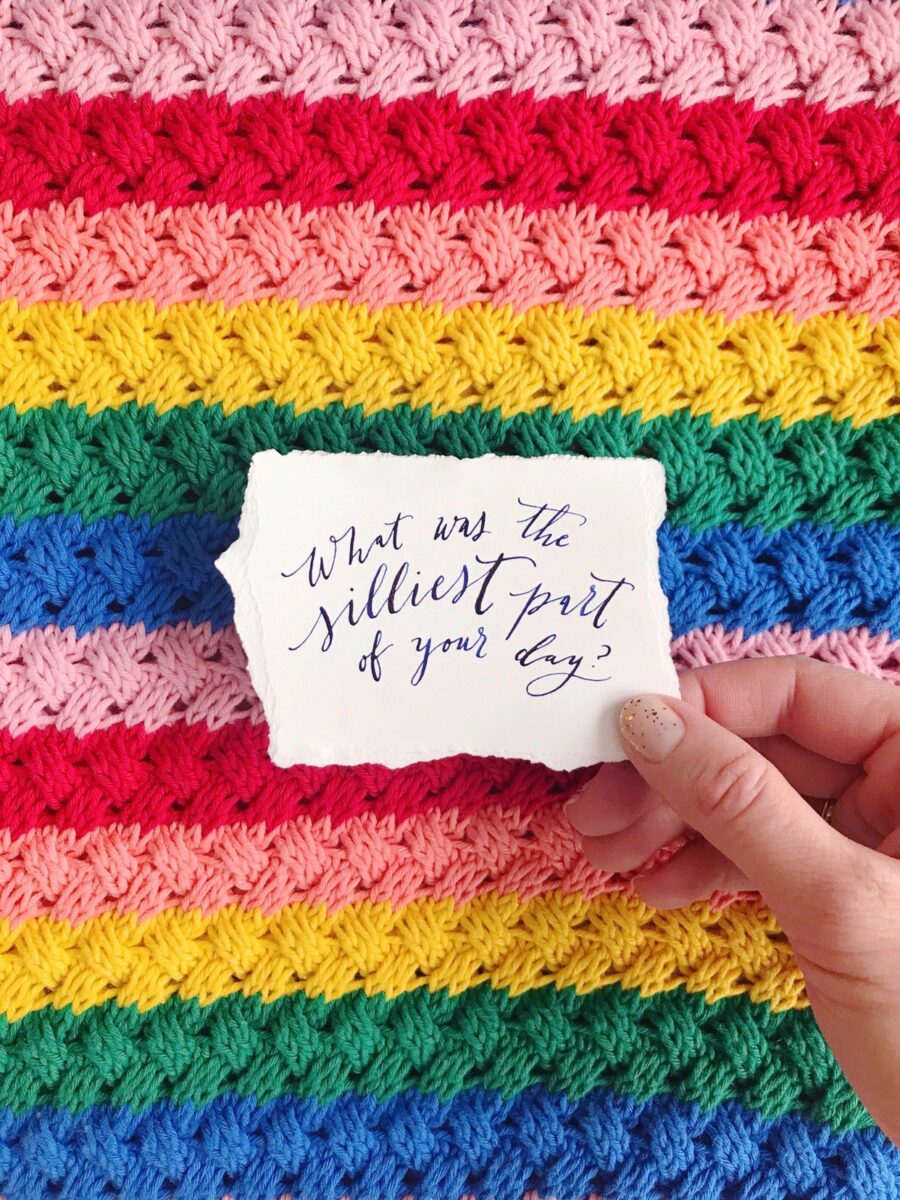 What was the
silliest part
of your day?